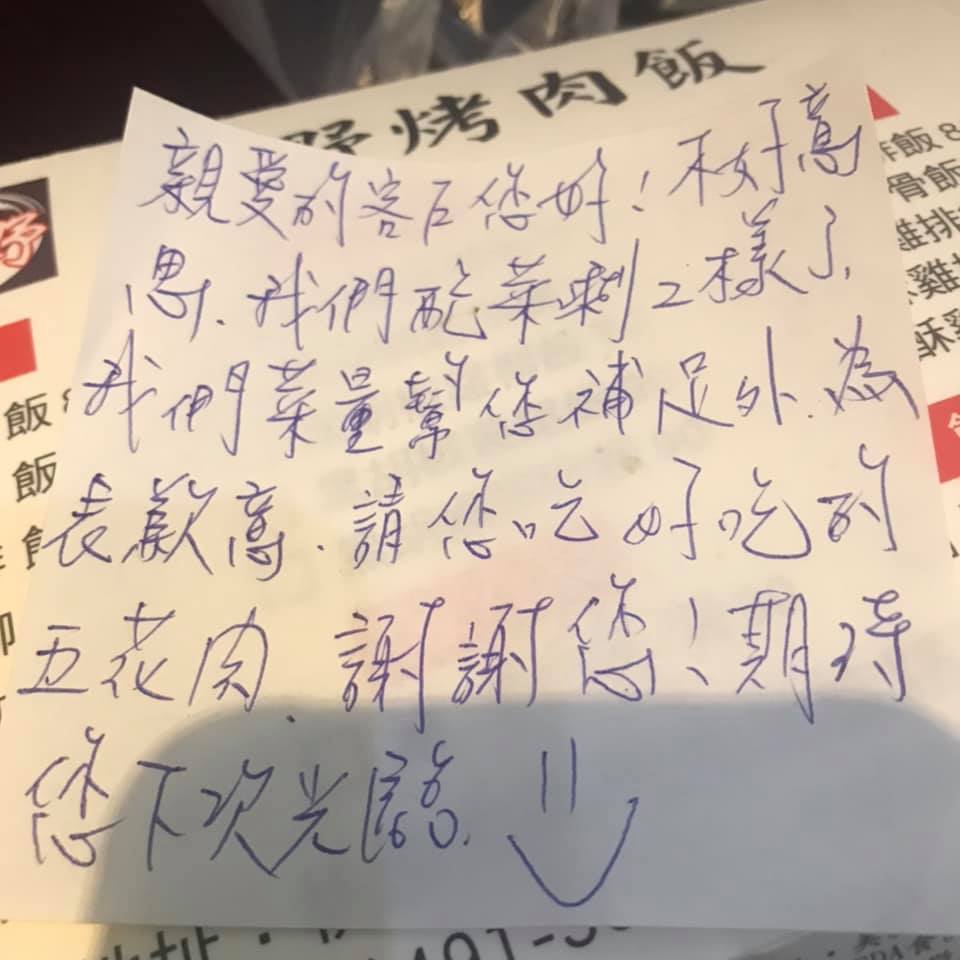 野烤肉飯
親愛的客戶您好！不好意
思、我們配菜剩2樣了,
我們菜量幫您補足外、為
表歉意、請您吃好吃的
五花肉、謝謝您！期待
您下次光臨.
飯 8
骨飯
雞排
雞
酥雞
飯 8
飯
址：
491-3